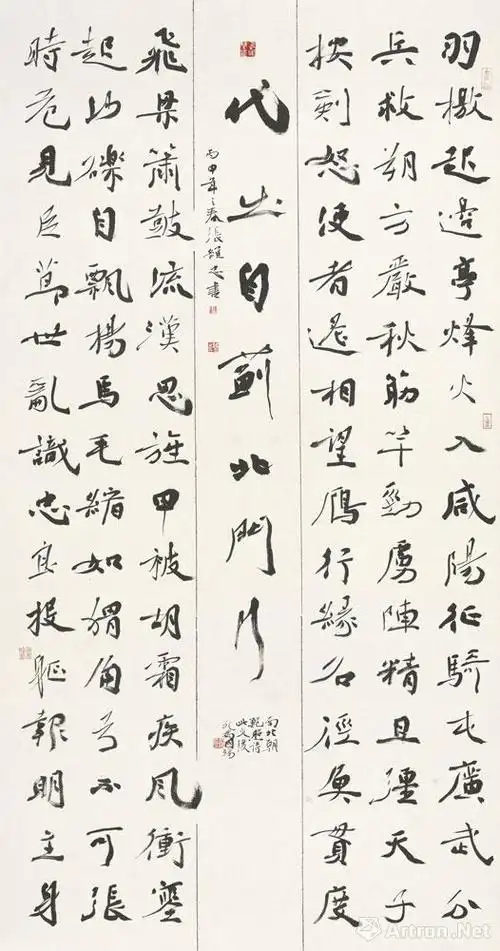 羽檄起邊亭烽火入咸陽征騎屯廣武分
兵救朔方嚴秋筋竿勁虜陣精且彊天子
按劍怒使者遙相望雁行緣石徑魚貫度
代出自薊北門行
南北朝
鮑照詩
死為國殤
丙申年之春張維忠書
飛梁簫鼓流漢思旌甲被胡霜疾風衝塞
起沙礫自飄楊馬毛縮如蝟角弓不可張
時危見臣節世亂識忠良投軀報明主身
Artron.Net